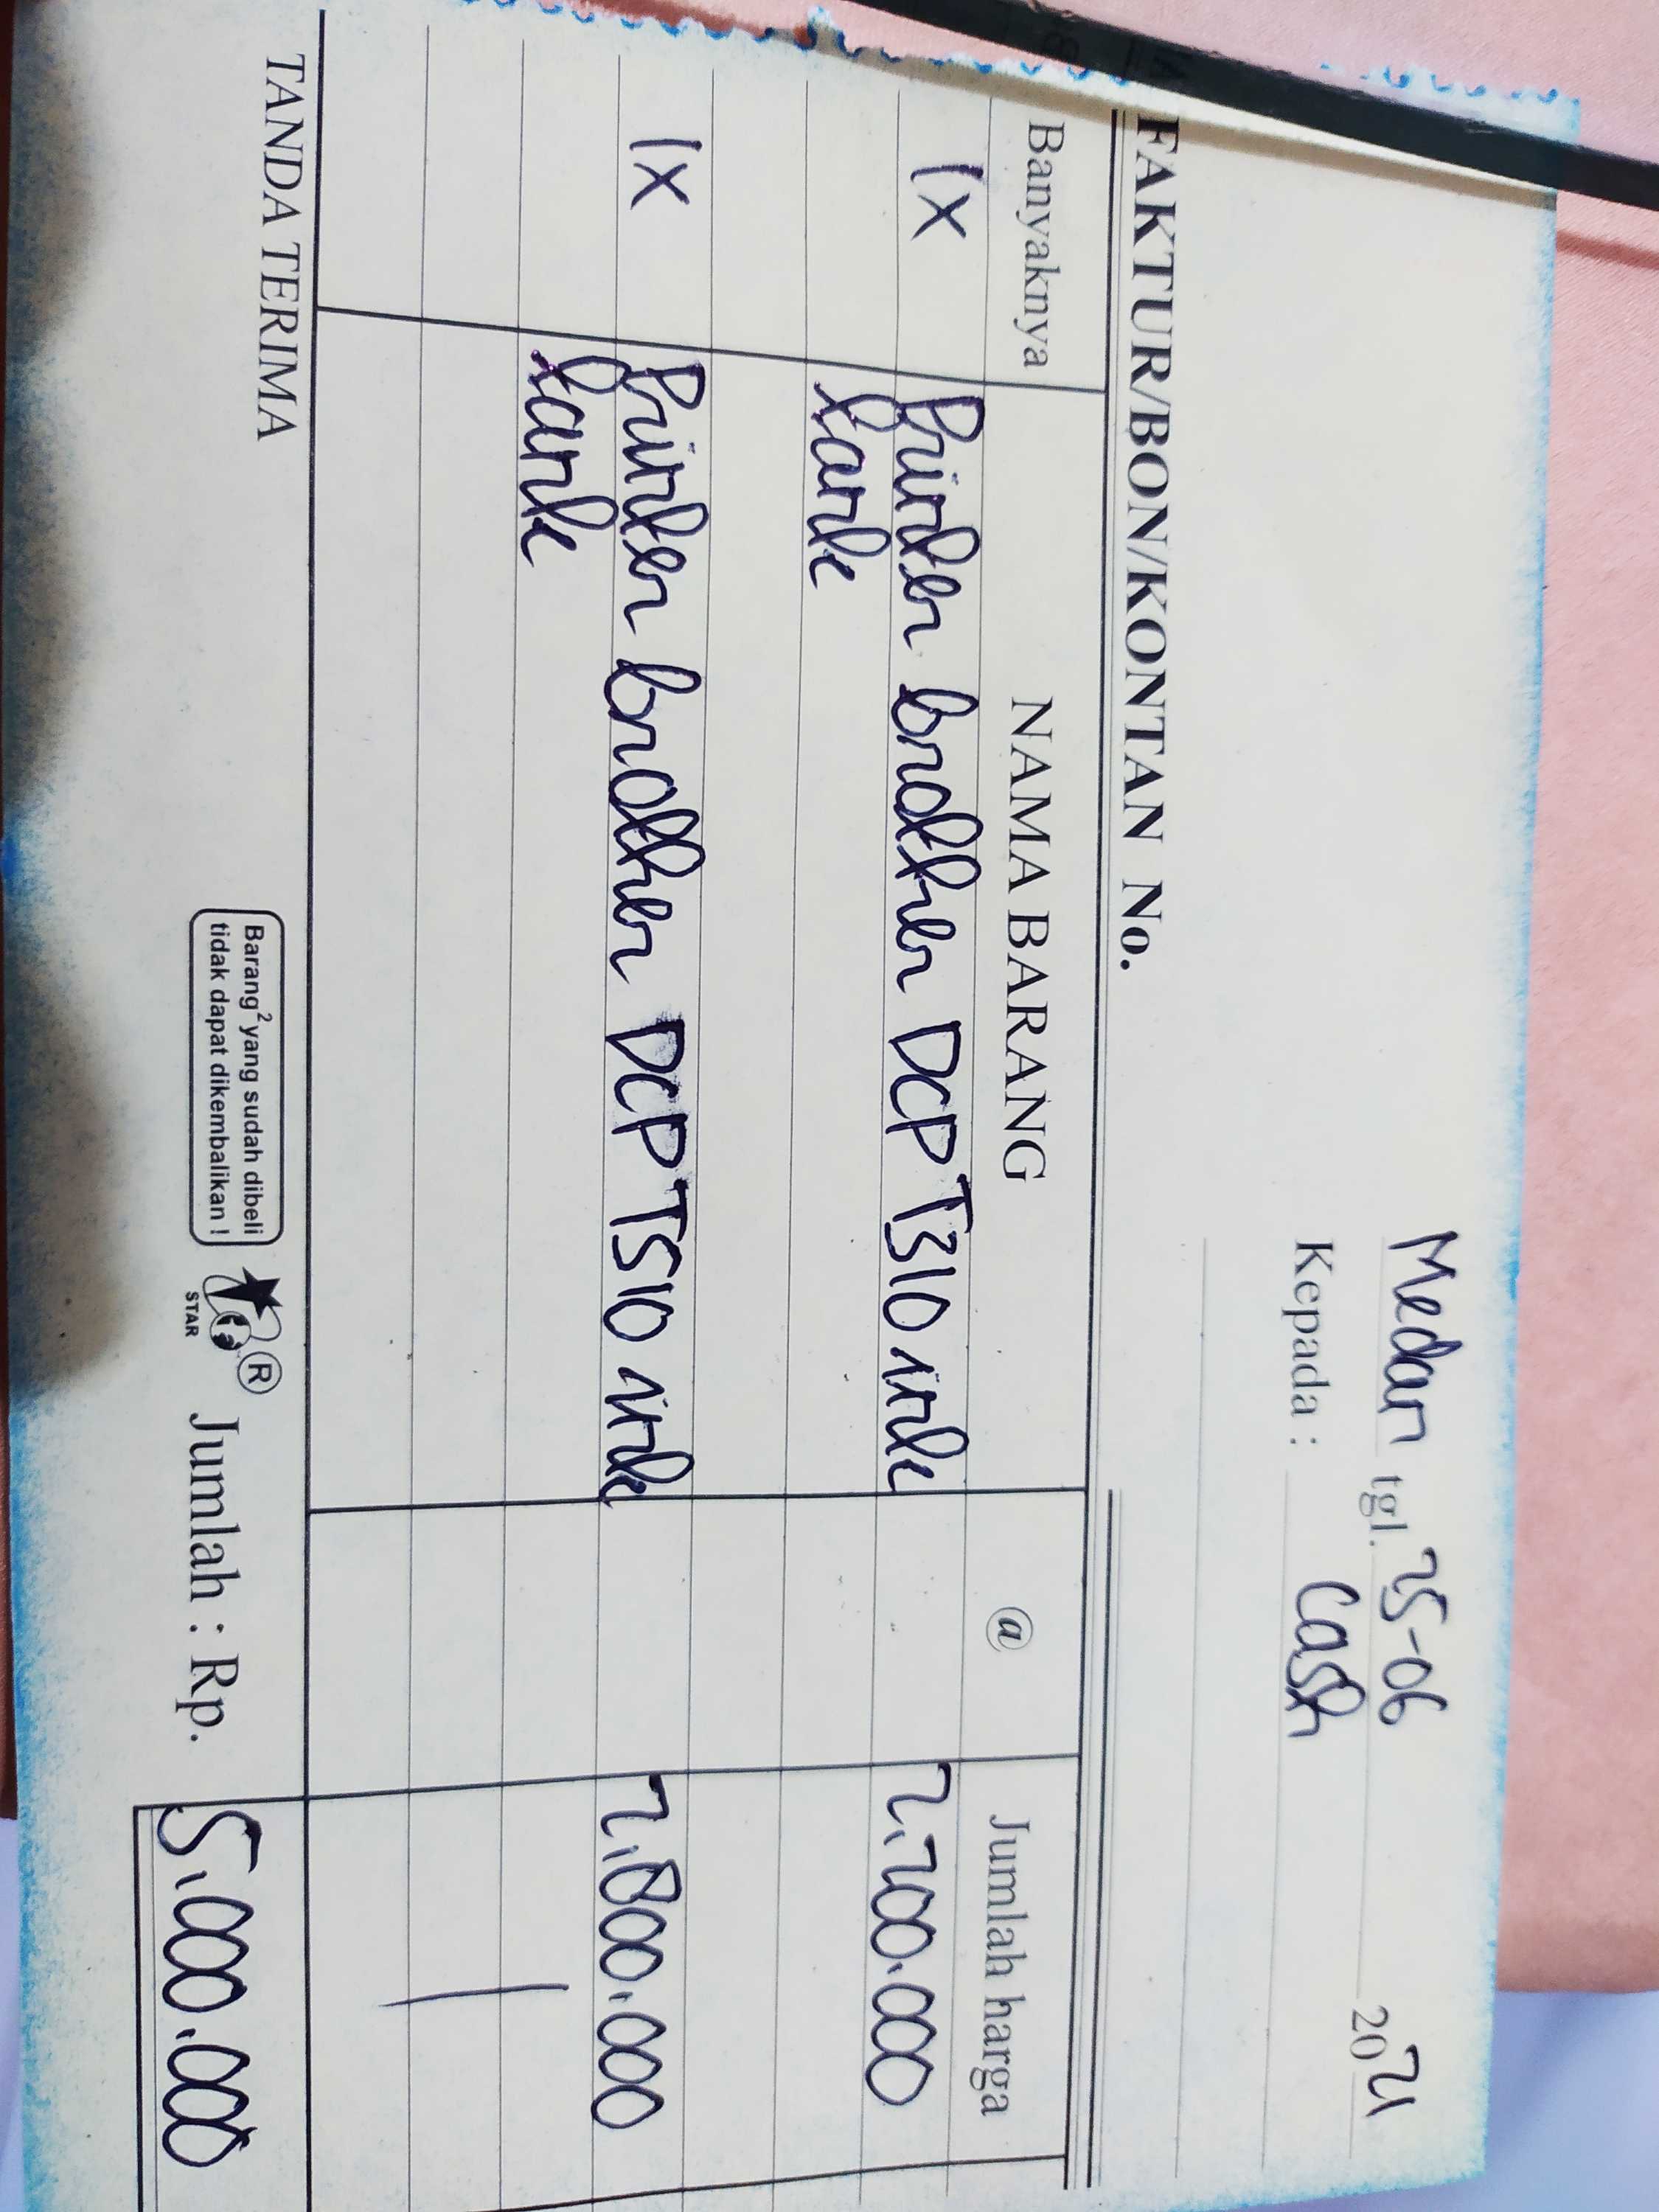 Medan tgl. 25-06 2021
Kepada : Cash
FAKTUR/BON/KONTAN No.
Banyaknya NAMA BARANG @ Jumlah harga
1x Printer brother DCP T310 ink 2.200.000
tank
1x Printer brother DCP T510 ink 2.800.000
tank
TANDA TERIMA
Barang² yang sudah dibeli
tidak dapat dikembalikan !
STAR
®
Jumlah : Rp. 5.000.000